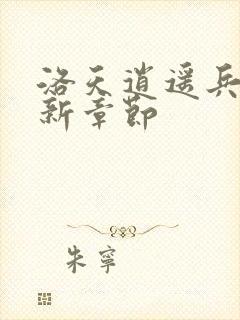 洛天逍遥兵
新章節
朱寧